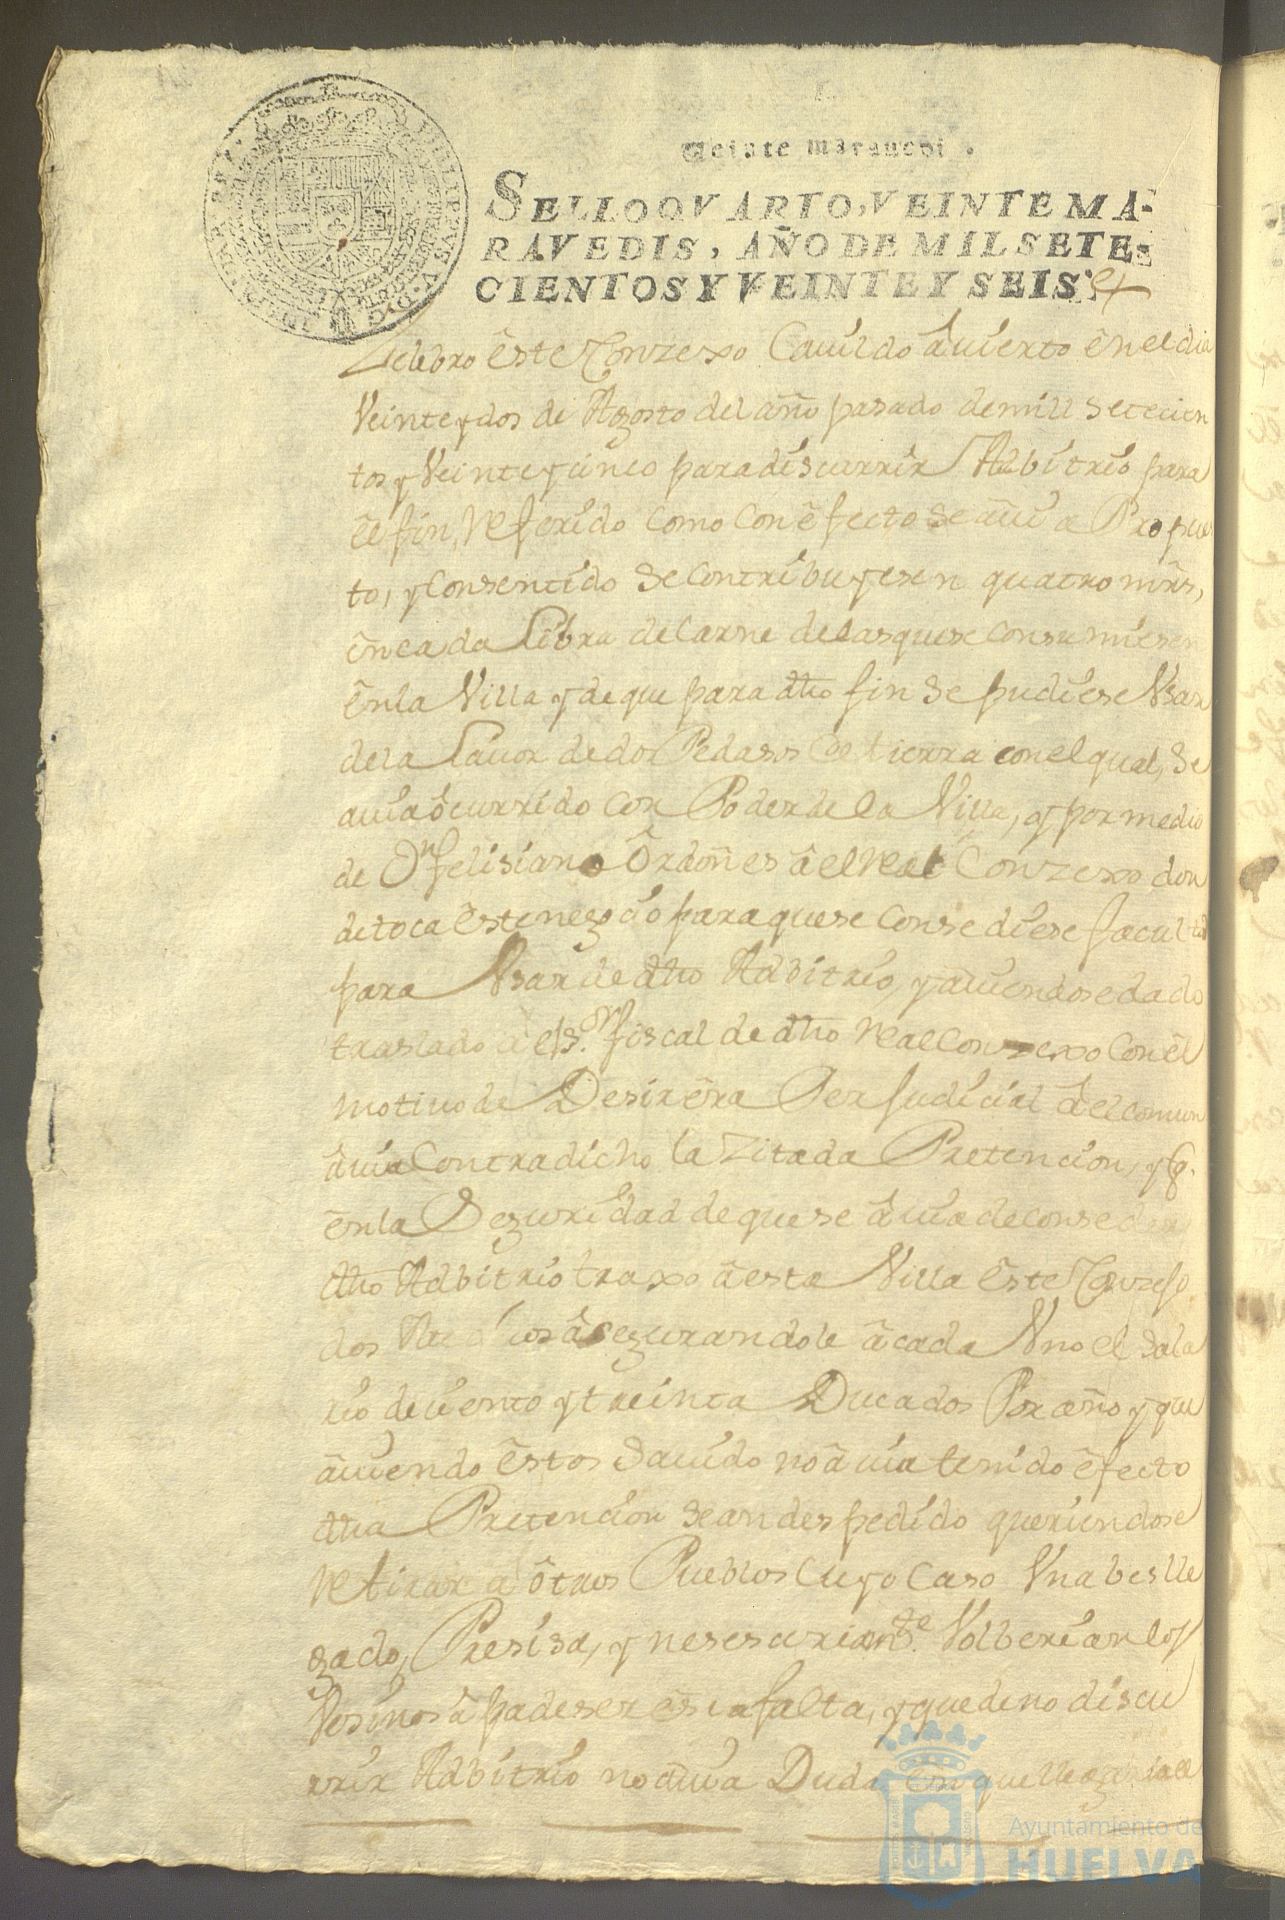 Veinte marauedi.
SELLO QVARTO, VEINTE MA-
RAVEDIS, AÑO DE MIL SETE-
CIENTOS Y VEINTE Y SEIS.
Zelebro este Conzexo Cauildo auierto en el dia
Veinte y dos de Agosto del año pasado de mill setecien
tos y Veinte y cinco para discurrir Adbitrio para
el fin Referido como con efecto se auia Propues
to, y Consentido se Contribuyesen quatro mrs,
en cada Libra de Carne de las que se consumiesen
en la Villa y de que para dho fin se pudiese Vsar
de la Lauor de dos Pedasos de tierra con el qual, se
auia ocurrido con Poder de la Villa, y por medio
de Dn felisiano Ordoñes a el Real Conzexo don
de toca este negocio para que se consediese facultd
para Vsar de dho Adbitrio, y auiendose dado
traslado a el Sor. fiscal de dho Real Conzexo con el
motiuo de Desir era Perjudicial a el comun
auia Contradicho la Zitada Pretencion, y q.
en la Seguridad de que se auia de conseder
dho Adbitrio traxo a esta Villa este Conzejo
dos asegurandole a cada Vno el sala
rio de ciento y treinta Ducados Por año y que
auiendo estos Sauido no auia tenido efecto
dha Pretencion se an despedido queriendose
Retirar a otros Pueblos cuyo Caso Vna bes lle
gado, Presisa, y nesesariamte. Volberian los
Vesinos a padeser esta falta, y que de no discu
rrir Adbitrio no auia Duda en que llegaria el
Ayuntamiento de
HUELVA